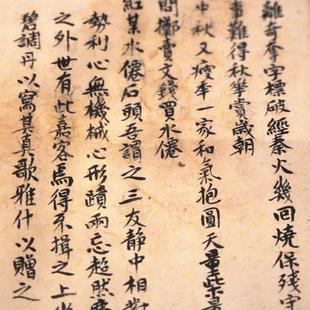 離奇奪字標破經秦火幾回燒保殘守
事難得秋華賞歲朝
中秋又瘦本一家和氣抱圓天
閒擲賣文錢買水僊
紅某水僊石頭吾謂之三友静中相對
勢利心無機械心形蹟兩忘超然
之外世有此嘉客焉得不揖之上坐
碧調丹以寫其真歌雅什以贈之